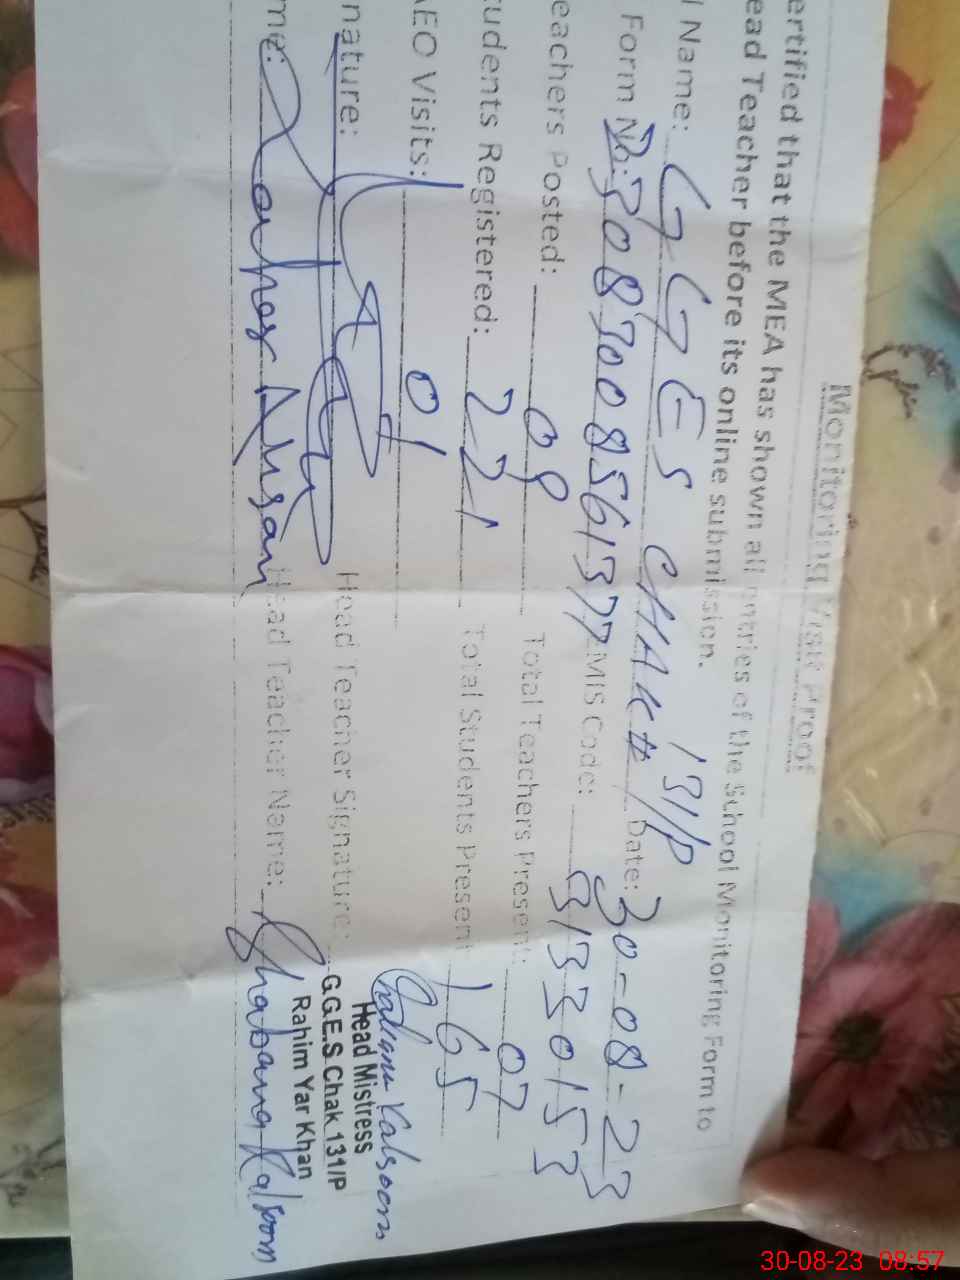 Monitoring Visit Proof
ertified that the MEA has shown all entries of the School Monitoring Form to
ead Teacher before its online submission.
l Name: GGES CHAK # 131/P Date: 30-08-23
Form No: 3083008561377 EMIS Code: 31330153
eachers Posted: 08 Total Teachers Present: 07
tudents Registered: 221 Total Students Present 165
AEO Visits: 01
nature: Head Teacher Signature: Shabana Kalsoom
Head Mistress
G.G.E.S Chak 131/P
Rahim Yar Khan
me: Ahsan Head Teacher Name: Shabana Kalsoom
30-08-23 08:57